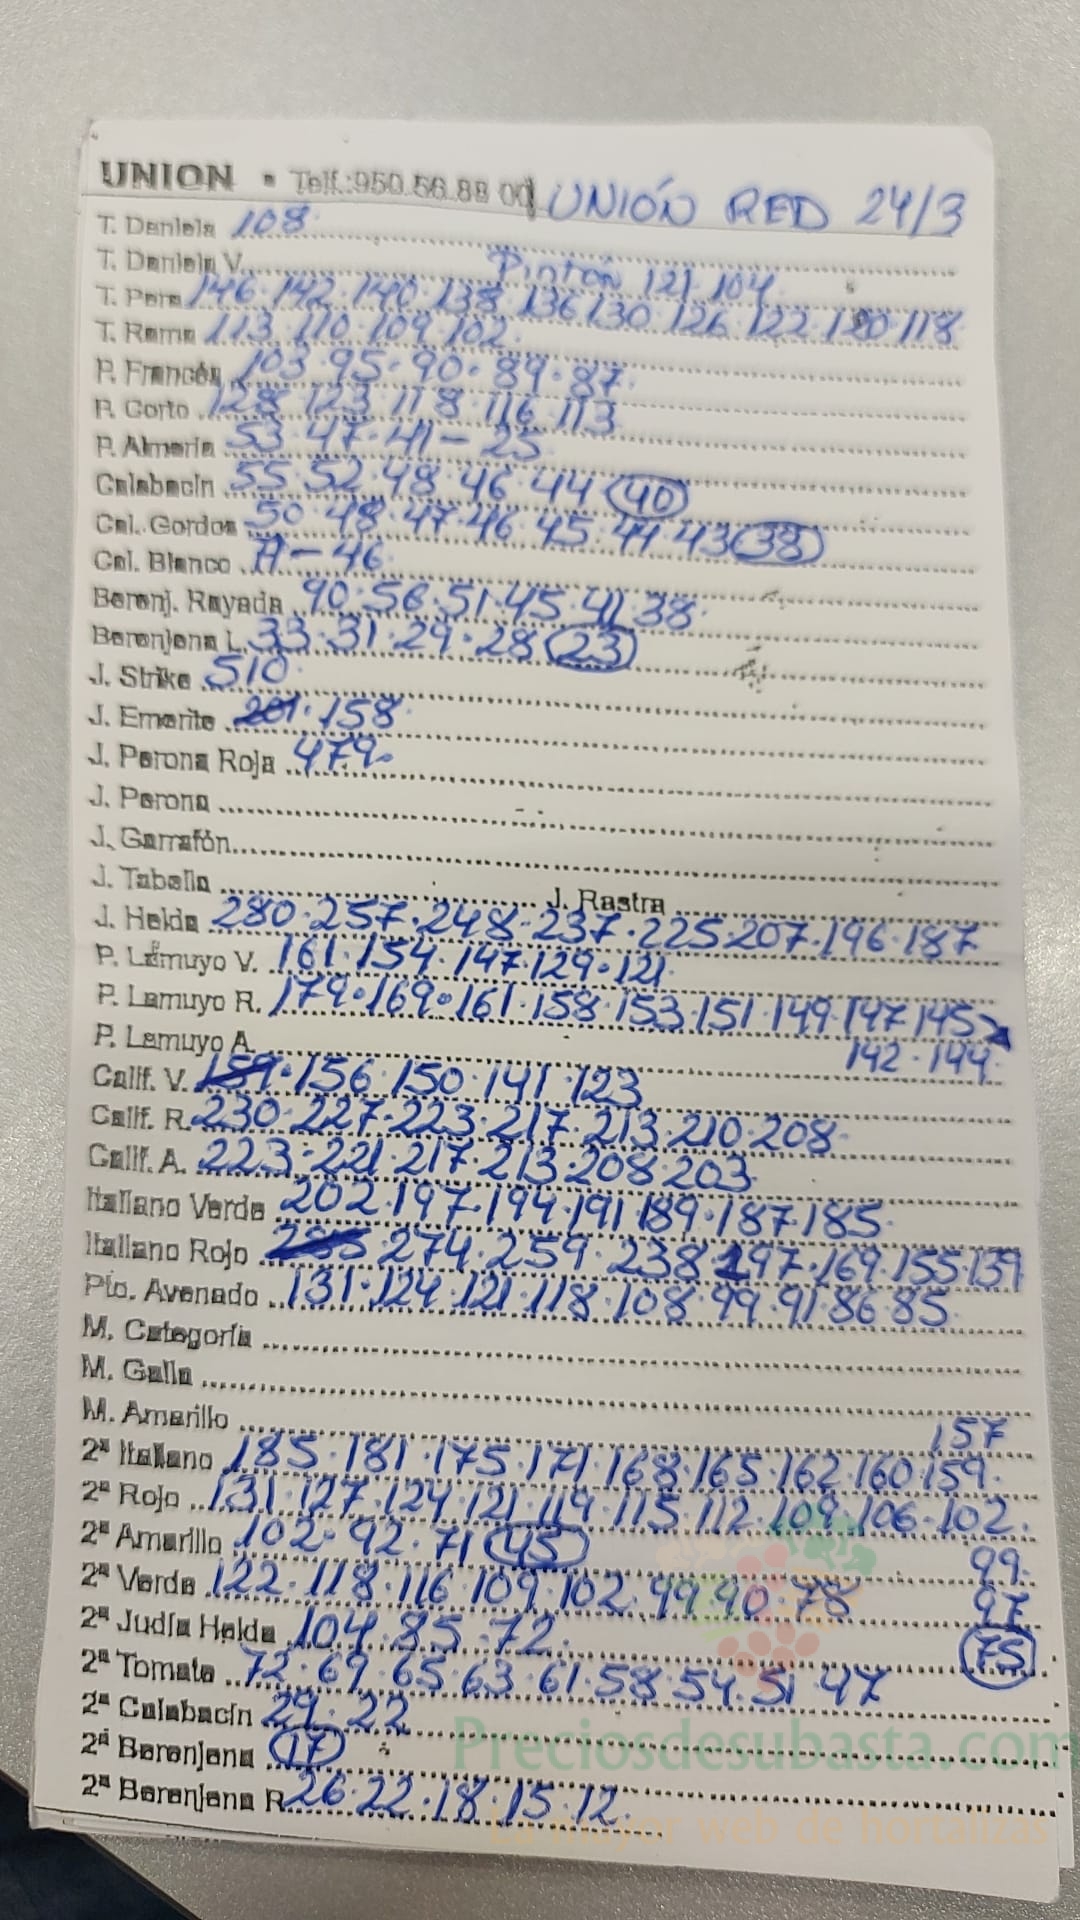 UNION • Telf.:950.56.88 00 UNIÓN RED 24/3
T. Daniela 108
T. Daniela V. Pintón 121 104
T. Pera 146 · 142 · 140 · 138 · 136 130 · 126 · 122 · 120 118
T. Rama 113 · 110 · 109 · 102
P. Francés 103 · 95 · 90 · 89 · 87
P. Corto 128 · 123 · 118 · 116 · 113
P. Almería 53 · 47 · 41 - 25
Calabacín 55 · 52 · 48 · 46 · 44 40
Cal. Gordos 50 · 48 · 47 · 46 · 45 · 44 · 43 38
Cal. Blanco A - 46
Berenj. Rayada 90 · 56 · 51 · 45 · 41 · 38
Berenjena L. 33 · 31 · 29 · 28 23
J. Strike 510
J. Emerite 201 · 158
J. Perona Roja 479
J. Perona
J. Garrafón
J. Tabella J. Rastra
J. Helda 280 · 257 · 248 · 237 · 225 · 207 · 196 · 187
P. Lamuyo V. 161 · 154 · 147 · 129 · 121
P. Lamuyo R. 179 · 169 · 161 · 158 · 153 · 151 · 149 · 147 · 145
P. Lamuyo A. 142 · 144
Calif. V. 159 · 156 · 150 · 141 · 123
Calif. R. 230 · 227 · 223 · 217 · 213 · 210 · 208
Calif. A. 223 · 221 · 217 · 213 · 208 · 203
Italiano Verde 202 · 197 · 194 · 191 · 189 · 187 · 185
Italiano Rojo 285 274 · 259 · 238 197 · 169 · 155 · 139
Pto. Avenado 131 · 124 · 121 · 118 · 108 · 99 · 91 · 86 · 85
M. Categoría
M. Galla
M. Amarillo 157
2ª Italiano 185 · 181 · 175 · 171 · 168 · 165 · 162 · 160 · 159
2ª Rojo 131 · 127 · 124 · 121 · 119 · 115 · 112 · 109 · 106 · 102
2ª Amarillo 102 · 92 · 71 45 99
2ª Verde 122 · 118 · 116 · 109 · 102 · 99 · 90 · 78 97
2ª Judía Helda 104 · 85 · 72 75
2ª Tomate 72 · 69 · 65 · 63 · 61 · 58 · 54 · 51 · 47
2ª Calabacín 29 · 22
2ª Berenjena 17
Preciosdesubasta.com
2ª Berenjena R. 26 · 22 · 18 · 15 · 12
La mayor web de hortalizas